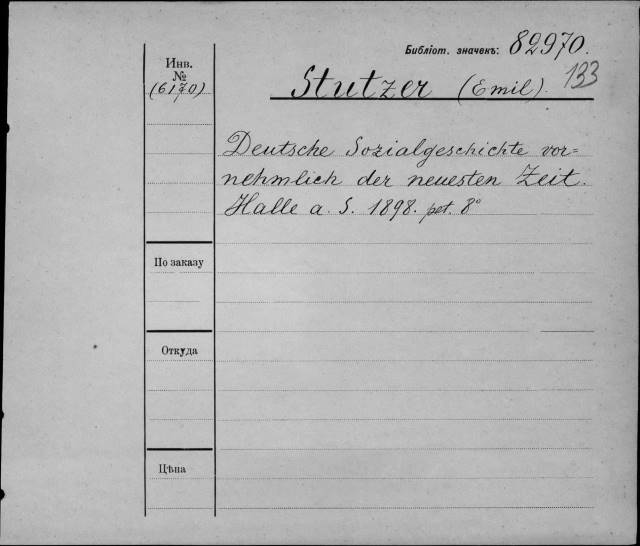 Библіот. значекъ: 82970.
133
Инв.
№
(6170)
Stutzer (Emil).
Deutsche Sozialgeschichte vor=
nehmlich der neuesten Zeit.
Halle a. S. 1898. pet. 8°
По заказу
Откуда
Цѣна